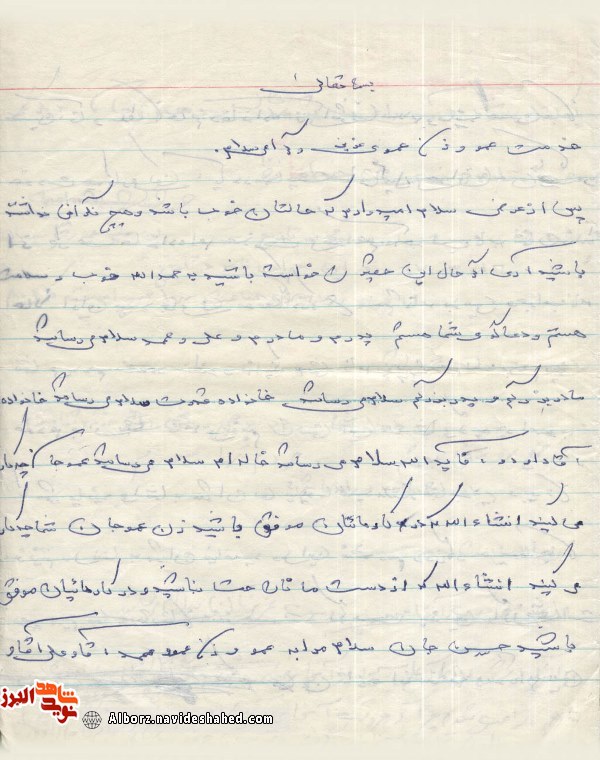 بسمه تعالی
خدمت عمو و زن عموی عزیز و گرامی سلام.
پس از عرض سلام امیدوارم که حالتان خوب باشد و هیچ نگرانی نداشته
باشید اگر از حال این حقیر خواسته باشید بحمدالله خوب و سلامت
هستم و دعاگوی شما هستم پدرم و مادرم و علی و محمد سلام می رسانند
مادربزرگم و پدربزرگم سلام می رسانند خانواده سلام می رسانند خانواده
آقا داود و سلام می رسانند خاله ام سلام می رسانند عمو جان چه کار
می کنید انشاءالله که در کارهایتان موفق باشید زن عمو جان شما چه کار
می کنید انشاءالله که از دست ما ناراحت نباشید و در کارهایتان موفق
باشید حسین جان سلام مرا به عمو و زن عمو محمد، آقا علی آقا و
شاهد نوید البرز
Alborz.navideshahed.com